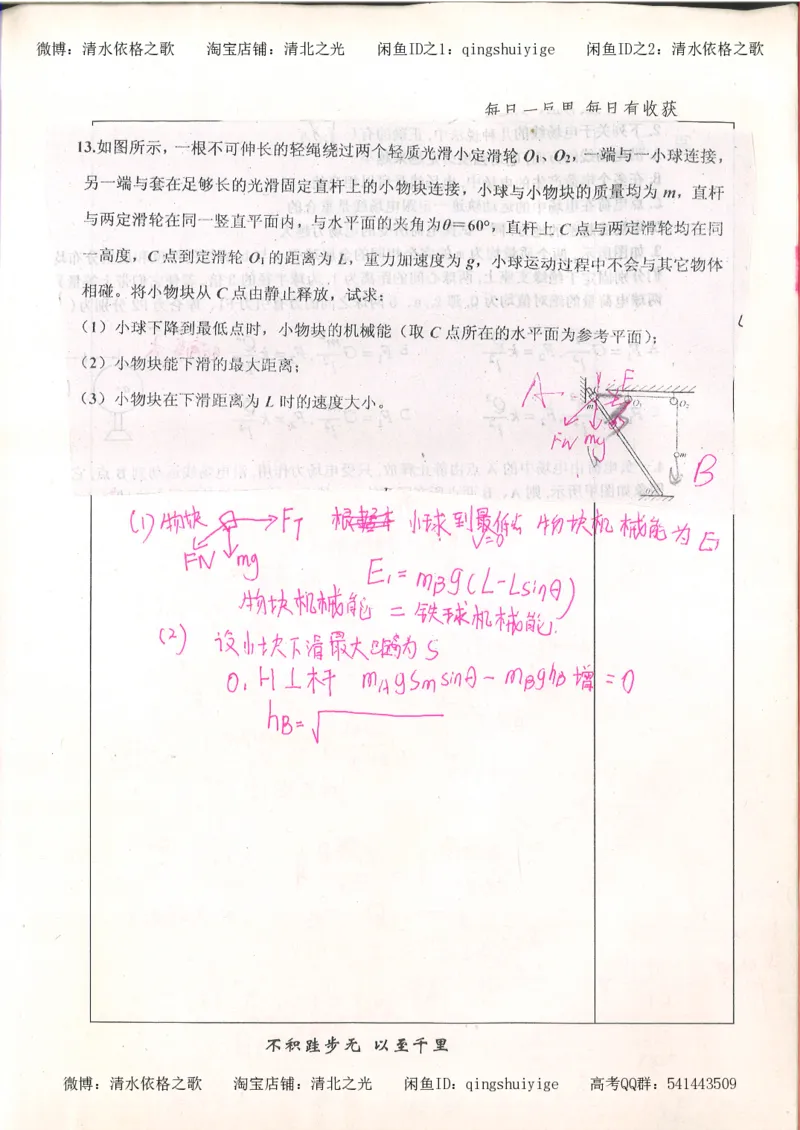 微博：清水依格之歌 淘宝店铺：清北之光 闲鱼ID之1：qingshuiyige 闲鱼ID之2：清水依格之歌
每日一反思 每日有收获
13.如图所示，一根不可伸长的轻绳绕过两个轻质光滑小定滑轮 O₁、O₂，一端与一小球连接，
另一端与套在足够长的光滑固定直杆上的小物块连接，小球与小物块的质量均为 m，直杆
与两定滑轮在同一竖直平面内，与水平面的夹角为θ=60°，直杆上 C 点与两定滑轮均在同
一高度，C 点到定滑轮 O₁的距离为 L，重力加速度为 g，小球运动过程中不会与其它物体
相碰。将小物块从 C 点由静止释放，试求：
（1）小球下降到最低点时，小物块的机械能（取 C 点所在的水平面为参考平面）；
（2）小物块能下滑的最大距离；
（3）小物块在下滑距离为 L 时的速度大小。
A
F
O₁
O₂
m
FN mg
B
(1) 物块 FT 小球到最低点 物块机械能为 E₁
V=0
FN mg
E₁=mBg(L-Lsinθ)
物块机械能 = 铁球机械能.
(2) 设小块下滑最大距离为 S
O₁H⊥杆 mAgSmsinθ-mBghB增=0
hB=√
不积跬步无 以至千里
微博：清水依格之歌 淘宝店铺：清北之光 闲鱼ID：qingshuiyige 高考QQ群：541443509